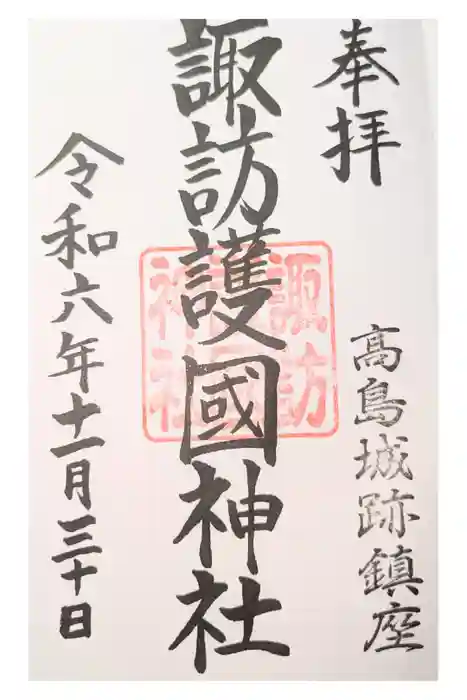 奉拝
高島城跡鎮座
諏訪護國神社
諏訪
護國
神社
令和六年十一月三十日